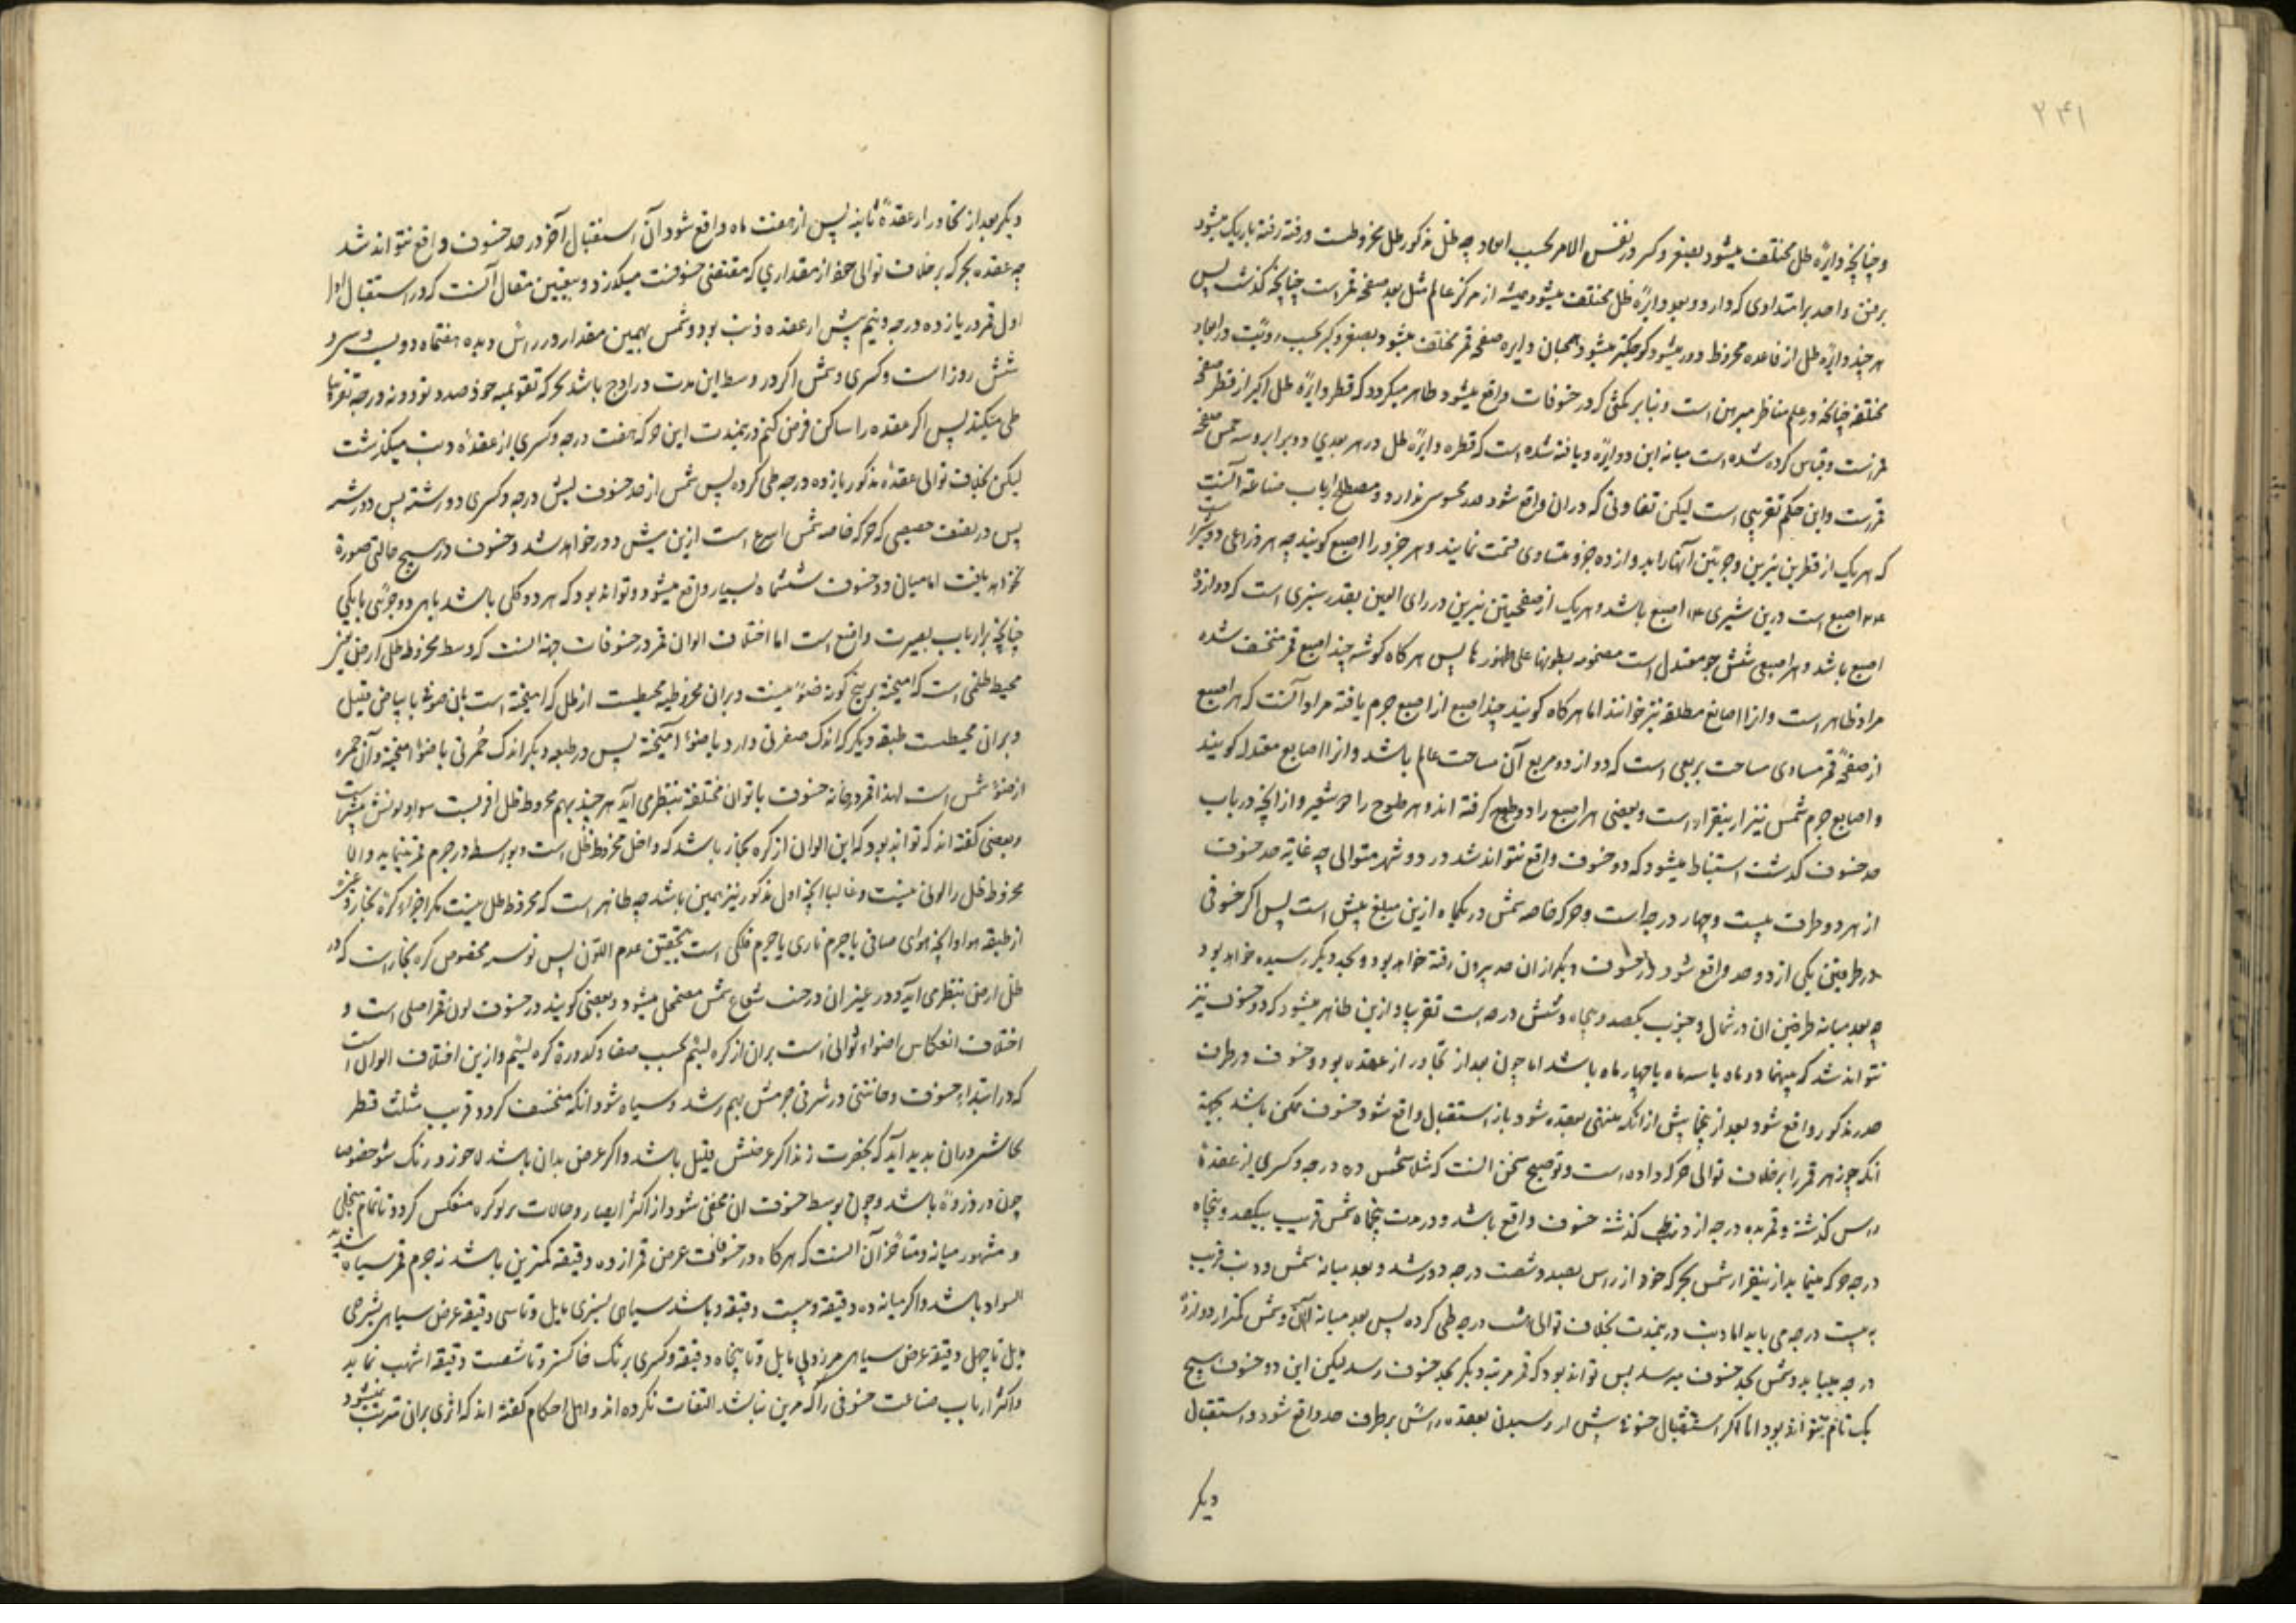 ۲۴۱
و چنانچه دایرهٔ ظل مختلف میشود بصغر و کبر در نفس الامر بحسب ابعاد چه ظل مذکور ظل مخروطست و رفته رفته باریک میشود
بر واحد برامتدادی که دارد و بعد دایرهٔ ظل مختلف میشود از مرکز عالم مثل بعد صفحه قمر است چنانچه گذشت پس
هر چند دایرهٔ ظل از قاعده مخروط دور میشود کوچکتر میشود همچنان دایره صفحه قمر مختلف میشود بصغر و کبر بحسب رویت در ابعاد
مختلفه چنانچه در علم مناظر مبرهن است و بنابر مکثی که در خسوفات واقع میشود ظاهر میگردد که قطر دایرهٔ ظل اکبر از قطر صفحه
قمرست و قیاس کرده شده است میانه این دو دایره و یافته شده است که قطر دایرهٔ ظل در هر بعدی دو برابر و سه خمس صفحه
قمرست و این حکم تقریبی است لیکن تفاوتی که در ان واقع شود قدر محسوسی ندارد و مصطلح ارباب صناعة آنست
که هر یک از قطرین نیرین و جرمین آنها را بدوازده جزو متساوی قسمت نمایند و هر جزو را اصبع گویند چه هر ذراعی دو شبر است
۲۴ اصبع است درین شبری ۱۲ اصبع باشد و هر یک از صفحتین نیرین در رای العین بقدر شبری است که دوازده
اصبع باشد و هر اصبعی شش جو معتدل است مضمومه بطونها علی ظهورها پس هر گاه گوشه چند اصبع قمر منخسف شده
مراد ظاهر است و انرا اصابع مطلقه نیز خوانند اما هر گاه گویند چند اصبع از اصبع جرم یافته مراد آنست که هر اصبع
از صفحهٔ قمر مساوی مساحت ربعی است که دوازده مربع آن مساحت عالم باشد و انرا اصابع معتدله گویند
و اصابع جرم شمس نیز ازینقرار است و بعضی هر اصبع را دو طلوح گرفته اند و هر طلوح را جو شعیر و از آنچه در باب
حد خسوف گذشت استنباط میشود که دو خسوف واقع نتواند شد در دو شهر متوالی چه غایة حد خسوف
از هر دو طرف بیست و چهار درجه است و حرکه خاصه شمس در یکماه ازین مبلغ بیش است پس اگر خسوفی
در طرفین یکی از دو حد واقع شود در خسوف دیگر از ان حد بیرون رفته خواهد بود و بحد دیگر رسیده خواهد بود
چه بعد میانه طرفین ان در شمال و جنوب یکصد و پنجاه و شش درجه است تقریبا و ازین ظاهر میشود که دو خسوف نیز
نتواند شد که بینهما دو ماه یا سه ماه یا چهار ماه باشد اما چون بعد از تجاوز از عقده بود و خسوف در طرف
حد مذکور واقع شود بعد از پنجماه پیش از آنکه منتهی بعقده شود باز استقبال واقع شود خسوف ممکن باشد بجهة
انکه جوزهر قمر را بر خلاف توالی حرکه داده است و توضیح سخن انست که مثلا شمس ده درجه و کسری از عقدهٔ
راس گذشته و قمر بده درجه از ذنب گذشته خسوف واقع باشد و در مدت پنجماه شمس قریب بیکصد و پنجاه
درجه حرکه مینماید ازینقرار شمس بحرکه خود از راس بصد و شصت درجه دور شد و بعد میانه شمس و ذنب قریب
به بیست درجه می باید اما ذنب درینمدت بخلاف توالی هشت درجه طی کرده پس بعد میانه آن و شمس کمتر از دوازده
درجه میباید و شمس بحد خسوف میرسد پس تواند بود که قمر مرتبه دیگر بحد خسوف رسد لیکن این دو خسوف هیچ
یک تام نتواند بود اما اگر استقبال خسوف پیش از رسیدن بعقده راس بر طرف حد واقع شود و استقبال
دیگر
دیگر بعد از تجاوز از عقدهٔ ثانیه پس از هفت ماه واقع شود آن استقبال آخر در حد خسوف واقع نتواند شد
چه عقده بحرکه بر خلاف توالی خود از مقداری که مقتضی خسوفست میگذرد و تعیین مقال آنست که در استقبال اول
اول قمر در یازده درجه و نیم پیش از عقده ذنب بود و شمس بهمین مقدار در راس و بده هفتماه دویست و سی و
شش روز است و کسری و شمس اگر در وسط این مدت در اوج باشد بحرکه تقویمیه خود صد و نود و نه درجه تقریبا
طی میکند پس اگر عقده را ساکن فرض کنیم درینمدت این حرکه هفت درجه و کسری از عقدهٔ ذنب میگذشت
لیکن بخلاف توالی عقدهٔ مذکور یازده درجه طی کرده پس شمس از حد خسوف بیش درجه و کسری دور شد
پس در بعقت حقیقی که حرکه خاصه شمس اسرع است ازین بیش دور خواهد شد و خسوف در هیچ حالتی صورة
نخواهد یافت اما میان دو خسوف ششماه بسیار واقع میشود و تواند بود که هر دو کلی باشد یا هر دو جزئی یا یکی
چنانچه بر ارباب بصیرت واضح است اما اختلاف الوان قمر در خسوفات بجهة انست که وسط مخروط ظل ارض نیز
محیط ظلمی است که امیخته بر هیچ گونه ضوئی نیست و بران مخروطیه محیطست از ظل که امیخته است بان ضوئی با بیاض قلیل
و بران محیطست طبقه دیگر که اندک صفرتی دارد با ضوء آمیخته پس در طبقه دیگر اندک حُمرتی با ضوء امیخته و آن حمره
از ضوء شمس است لهذا قمر در میانه خسوف بالوان مختلفه بنظر می آید هر چند بهم مخروط ظل اقربست سواد لونش بیشتر است
و بعضی گفته اند که تواند بود که این الوان از کره بخار باشد که داخل مخروط ظل است و بواسطه در جرم قمر مینماید و الا
مخروط ظل را لونی نیست و غالبا آنچه اول مذکور نیز همین باشد چه ظاهر است که مخروط ظل نیست مگر اجزاء کرهٔ بخار و غیره
از طبقه هوا و آنچه هوای صافی یا جرم ناری یا جرم فلکی است بتحقیق عدم اللون پس توسم مخصوص کره بخار است که در
ظل ارض بنظر می آید و در غیر ان در جنب شعاع شمس مضمحل میشود و بعضی گویند در خسوف لون قمر اصلی است و
اختلاف انعکاس اضواء ثوالی است بران از کره لیثم بحسب صفا و کدورة کره لیثم و ازین اختلاف الوان است
که در ابتداء خسوف دخانتی در شرقی جرمش بهم رسد و سیاه شود انگه منخسف گردد و قریب مثلث قطر
کاشر دوران بدید آید که بخضرت زند اگر عرضش قلیل باشد و اگر عرض بدان باشد لاجورد رنگ شود خصوصا
چون در ذروه باشد و چون بوسط خسوف ان مخفی شود از اکثر ابصار و حالات بر لوکره منعکس گردد تا تمام منجلی
و مشهور میانه متاخران انست که هر گاه در خسوفات عرض قمر از ده دقیقه کمترین باشد نه جرم قمر سیاه شدید
السواد باشد و اگر میانه ده دقیقه و بیست دقیقه باشد سیاهی بسبزی مایل و تا سی دقیقه عرض سیاهی بسرخی
مایل تا چهل دقیقه عرض سیاهی بزردی مایل و تا پنجاه دقیقه و کسری برنگ خاکستر و تا شصت دقیقه اشهب نماید
و اکثر ارباب صناعت خسوفی را که مرئی نباشد التفات نکرده اند و اهل احکام گفته اند که اثری بران مترتب نمیشود